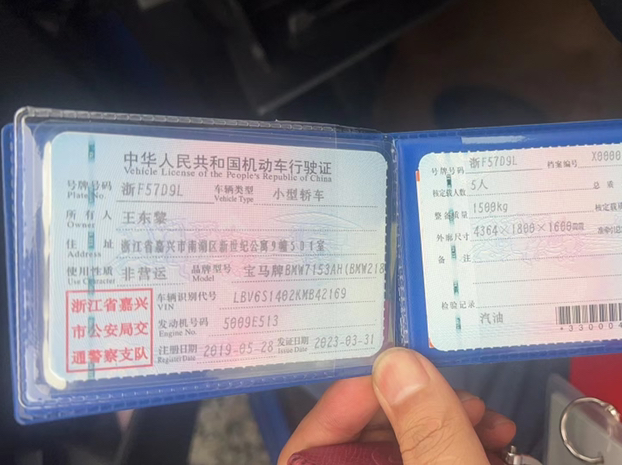 中华人民共和国机动车行驶证
Vehicle License of the People's Republic of China
号牌号码 浙F57D9L 车辆类型 小型轿车
Plate No. Vehicle Type
所有人 王东黎
Owner
住址 浙江省嘉兴市南湖区新世纪公寓9幢501室
Address
使用性质 非营运 品牌型号 宝马牌BMW7153AH(BMW218
Use Character Model
浙江省嘉兴
市公安局交
通警察支队
车辆识别代号 LBV6S1402KMB42169
VIN
发动机号码 5009E513
Engine No.
注册日期 2019-05-28 发证日期 2023-03-31
Register Date Issue Date
号牌号码 浙F57D9L 档案编号 X0000
核定载人数 5人 总质
整备质量 1500kg 核定载质
外廓尺寸 4364×1800×1600
备注
检验记录
汽油